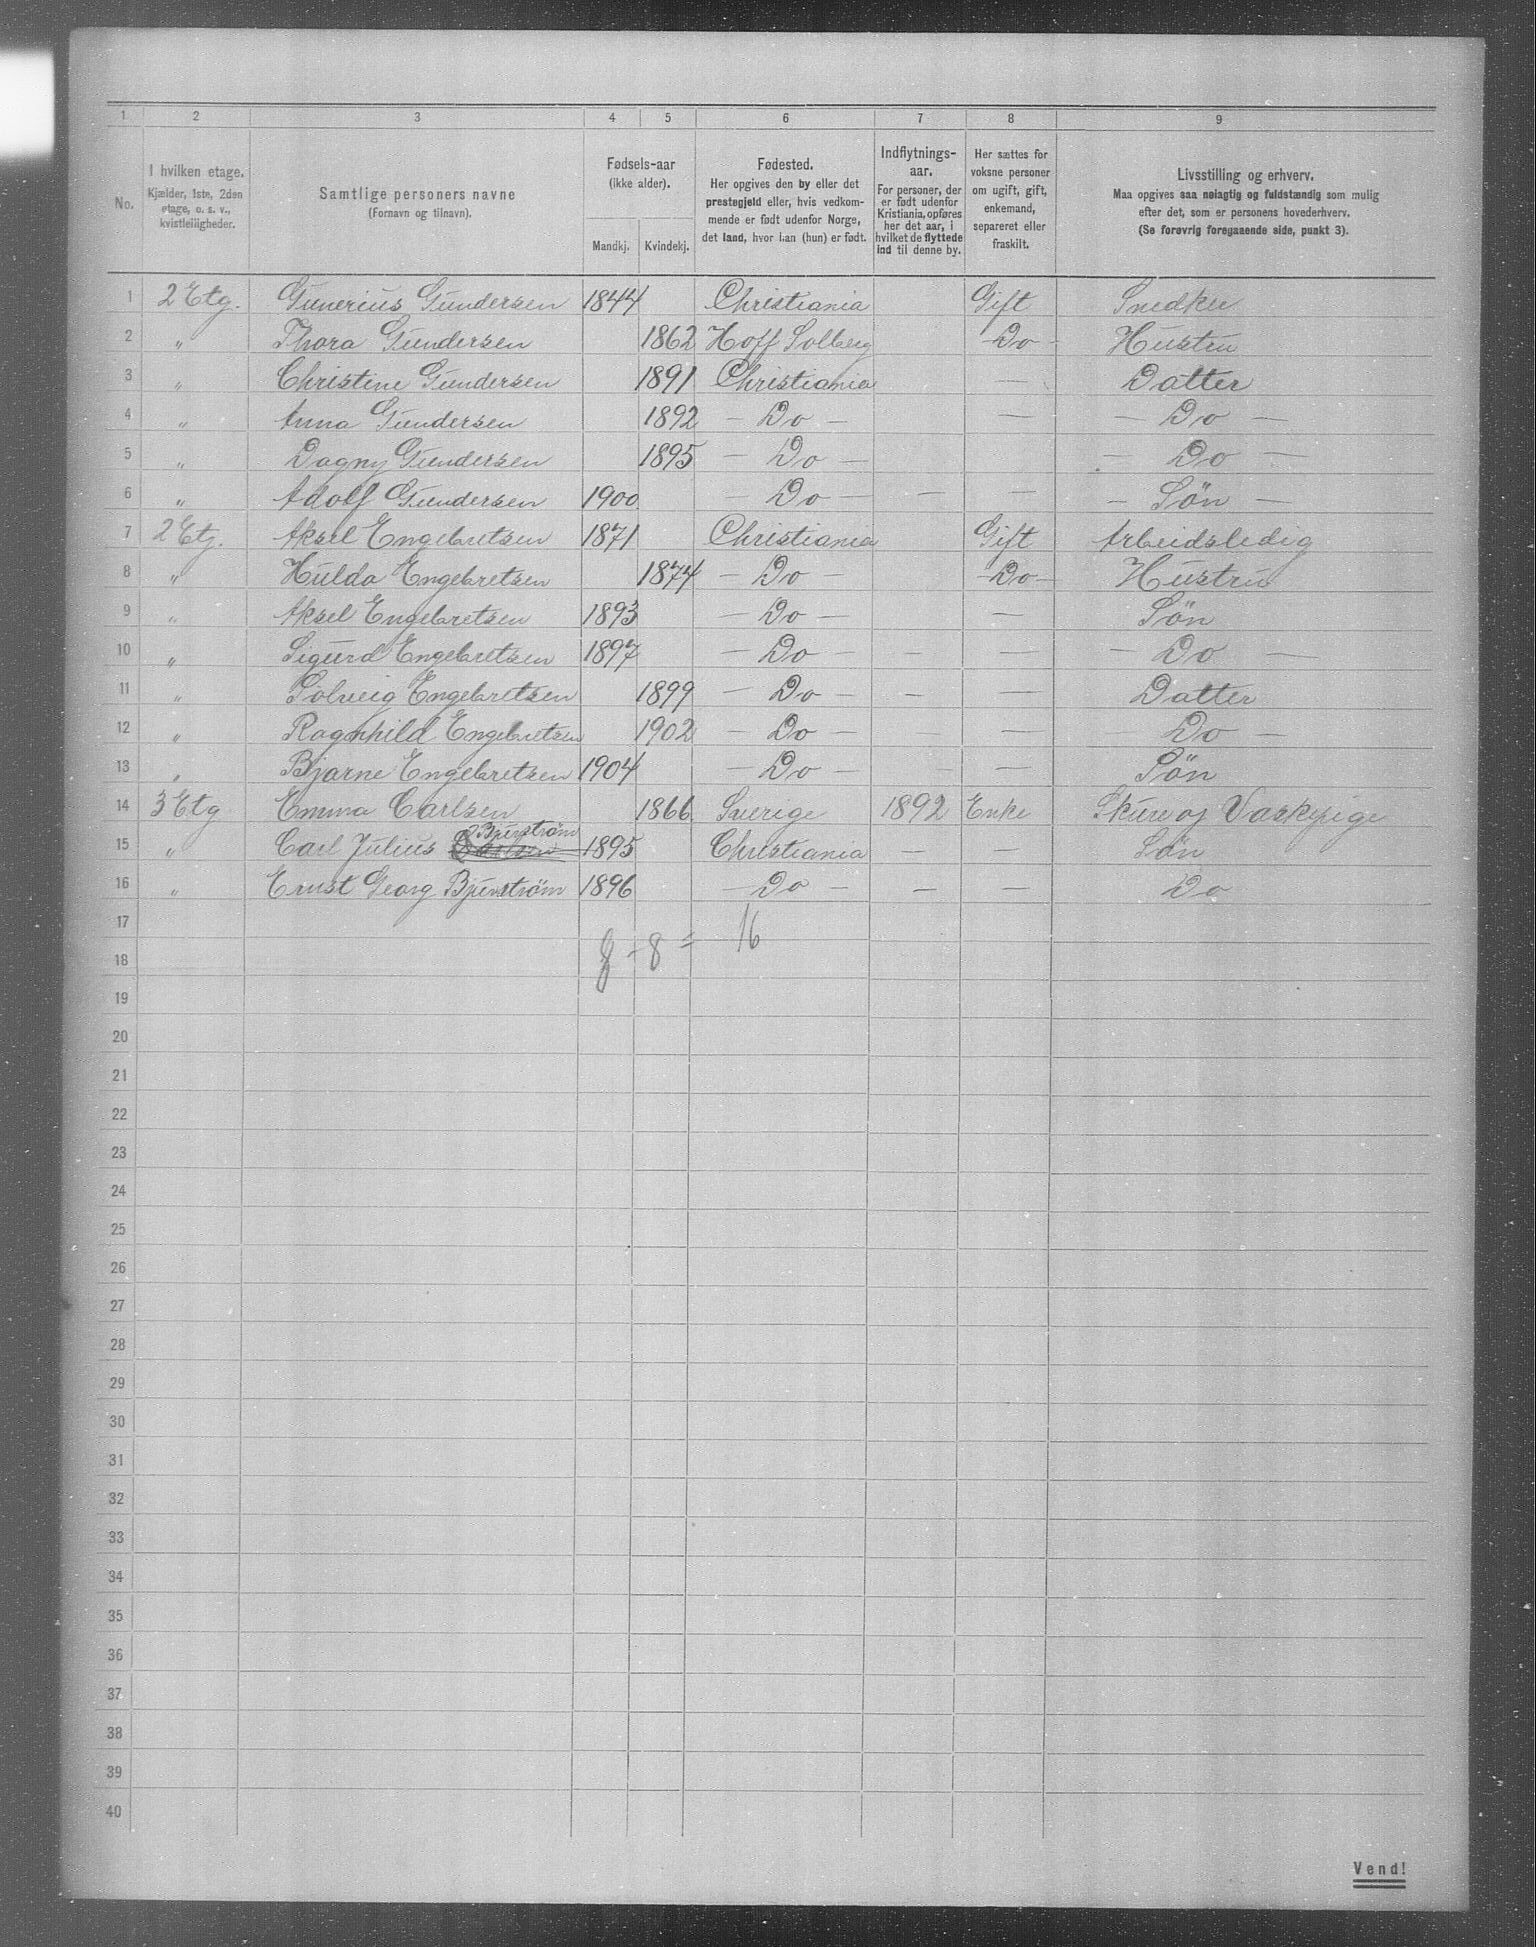 1 2 3 4 5 6 7 8 9
No.
I hvilken etage.
Kjælder, 1ste, 2den
etage, o. s. v.,
kvistleiligheder.
Samtlige personers navne
(Fornavn og tilnavn).
Fødsels-aar
(ikke alder).
Mandkj. Kvindekj.
Fødested.
Her opgives den by eller det
prestegjeld eller, hvis vedkom-
mende er født udenfor Norge,
det land, hvor han (hun) er født.
Indflytnings-
aar.
For personer, der
er født udenfor
Kristiania, opføres
her det aar, i
hvilket de flyttede
ind til denne by.
Her sættes for
voksne personer
om ugift, gift,
enkemand,
separeret eller
fraskilt.
Livsstilling og erhverv.
Maa opgives saa nøiagtig og fuldstændig som mulig
efter det, som er personens hovederhverv.
(Se forøvrig foregaaende side, punkt 3).
1 2 Etg. Gunerius Gundersen 1844 Christiania Gift Snedker
2 " Thora Gundersen 1862 Hoff Solberg - Do - Hustru
3 " Christine Gundersen 1891 Christiania — Datter
4 " Anna Gundersen 1892 — Do — — — Do —
5 " Dagny Gundersen 1895 — Do — - Do —
6 " Adolf Gundersen 1900 — Do — — — — Søn —
7 2 Etg. Aksel Engebretsen 1871 Christiania Gift Arbeidsledig
8 " Hulda Engebretsen 1874 — Do — - Do - Hustru
9 " Aksel Engebretsen 1893 — Do — — Søn
10 " Sigurd Engebretsen 1897 — Do — — — — Do —
11 " Solveig Engebretsen 1899 — Do — — — Datter
12 " Ragnhild Engebretsen 1902 — Do — — Do —
13 " Bjarne Engebretsen 1904 — Do — — — Søn
14 3 Etg Emma Carlsen 1866 Sverige 1892 Enke Skure og Vaskepige
15 " Carl Julius Carlsen Bjurstrøm 1895 Christiania — — Søn
16 " Ernst Georg Bjurstrøm 1896 — Do — — — Do
17
8 - 8 = 16
18
19
20
21
22
23
24
25
26
27
28
29
30
31
32
33
34
35
36
37
38
39
40
Vend!